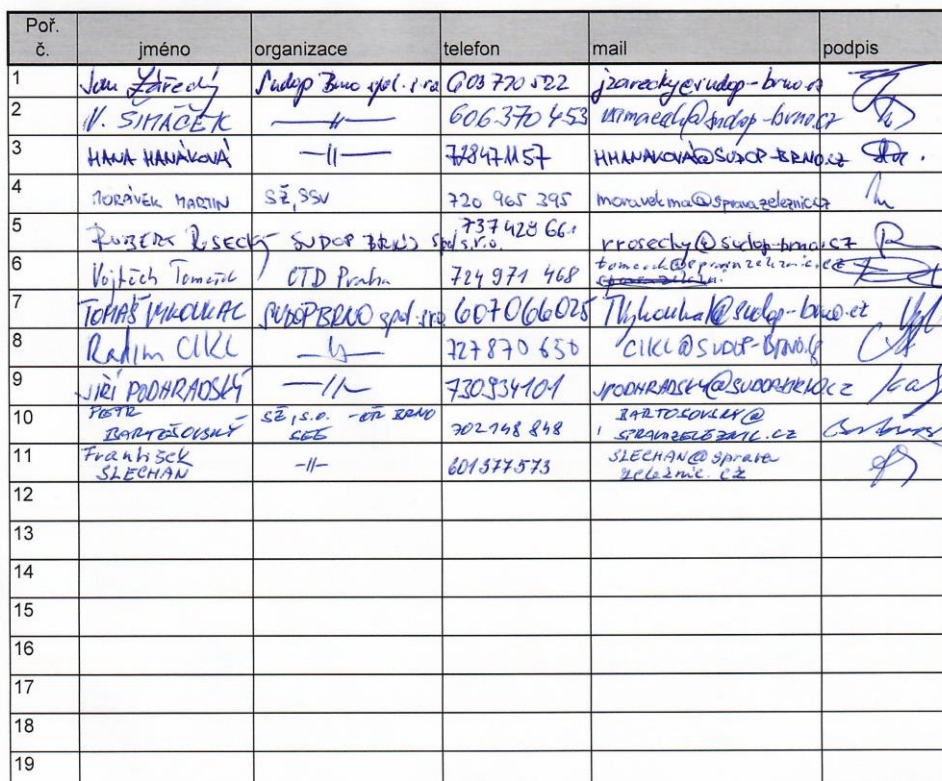 Poř. č. jméno organizace telefon mail podpis
1 Jan Zářecký Sudop Brno spol. s r.o. 603 770 522 jzarecky@sudop-brno.cz
2 V. SIMÁČEK —||— 606 370 453 vsimacek@sudop-brno.cz
3 HANA HANÁKOVÁ —||— 728471157 HHANAKOVA@SUDOP-BRNO.CZ
4 MORÁVEK MARTIN SŽ, SSV 720 965 395 moravekma@spravazeleznic.cz
5 ROBERT ROSECKÝ SUDOP BRNO spol. s.r.o. 737 428 661 rrosecky@sudop-brno.cz
6 Vojtěch CTD Praha 724 971 468
7 TOMÁŠ VYKOUKAL SUDOP BRNO spol. sro 607066025 TVykoukal@sudop-brno.cz
8 Radim CIKL —||— 727 870 650 CIKL@SUDOP-BRNO.CZ
9 JIŘÍ PODHRADSKÝ —||— 730934101 JPODHRADSKY@SUDOP-BRNO.CZ
10 PETR BARTOŠOVSKÝ SŽ, s.o. - OŘ BRNO SEE 702 148 848 BARTOSOVSKY@ SPRAVAZELEZNIC.CZ
11 František SLECHAN —||— 601577573 SLECHAN@sprava zeleznic.cz
12
13
14
15
16
17
18
19